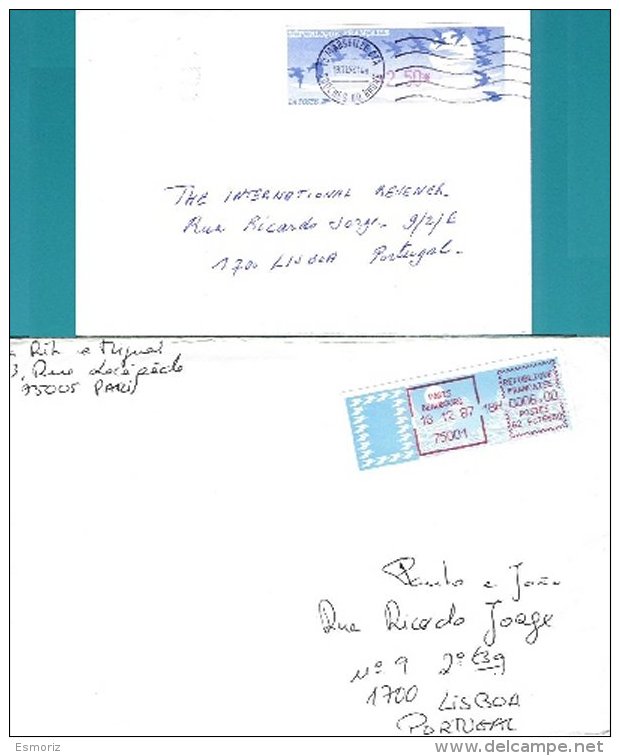 RÉPUBLIQUE FRANÇAISE
2,50*
LA POSTE
THE INTERNATIONAL
Rua Ricardo Jorge. 9/2/E
1700 LISBOA Portugal.
Rit e Miguel
3, Rue Lacépède
75005 PARIS
PARIS
BEAUBOURG
16 12 87 18H
75001
REPUBLIQUE
FRANCAISE
0006,00
POSTES
Paulo e João
Rua Ricardo Jorge
Nº 9 2º Esq
1700 LISBOA
PORTUGAL
Esmoriz
www.delcampe.net